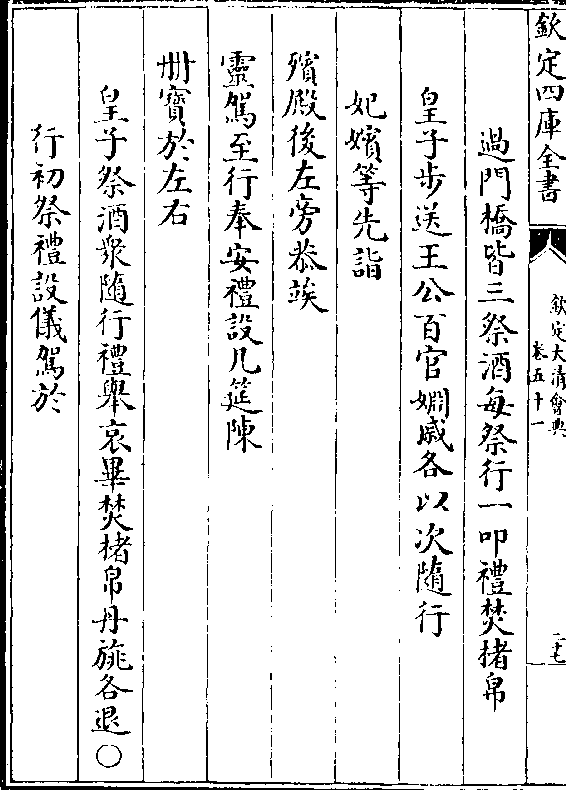 欽定四庫全書
欽定大清會典
卷五十一
二七
過門橋皆三祭酒每祭行一叩禮焚楮帛
皇子步送王公百官婣戚各以次隨行
妃嬪等先詣
殯殿後左旁恭竢
靈駕至行奉安禮設几筵陳
冊寶於左右
皇子祭酒衆隨行禮舉哀畢焚楮帛丹旐各退〇
行初祭禮設儀駕於